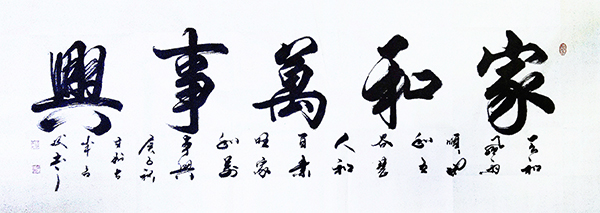 家和萬事興
天和
風雨
順地
和五
谷豐
人和
百業
旺家
和萬
事興
庚子秋